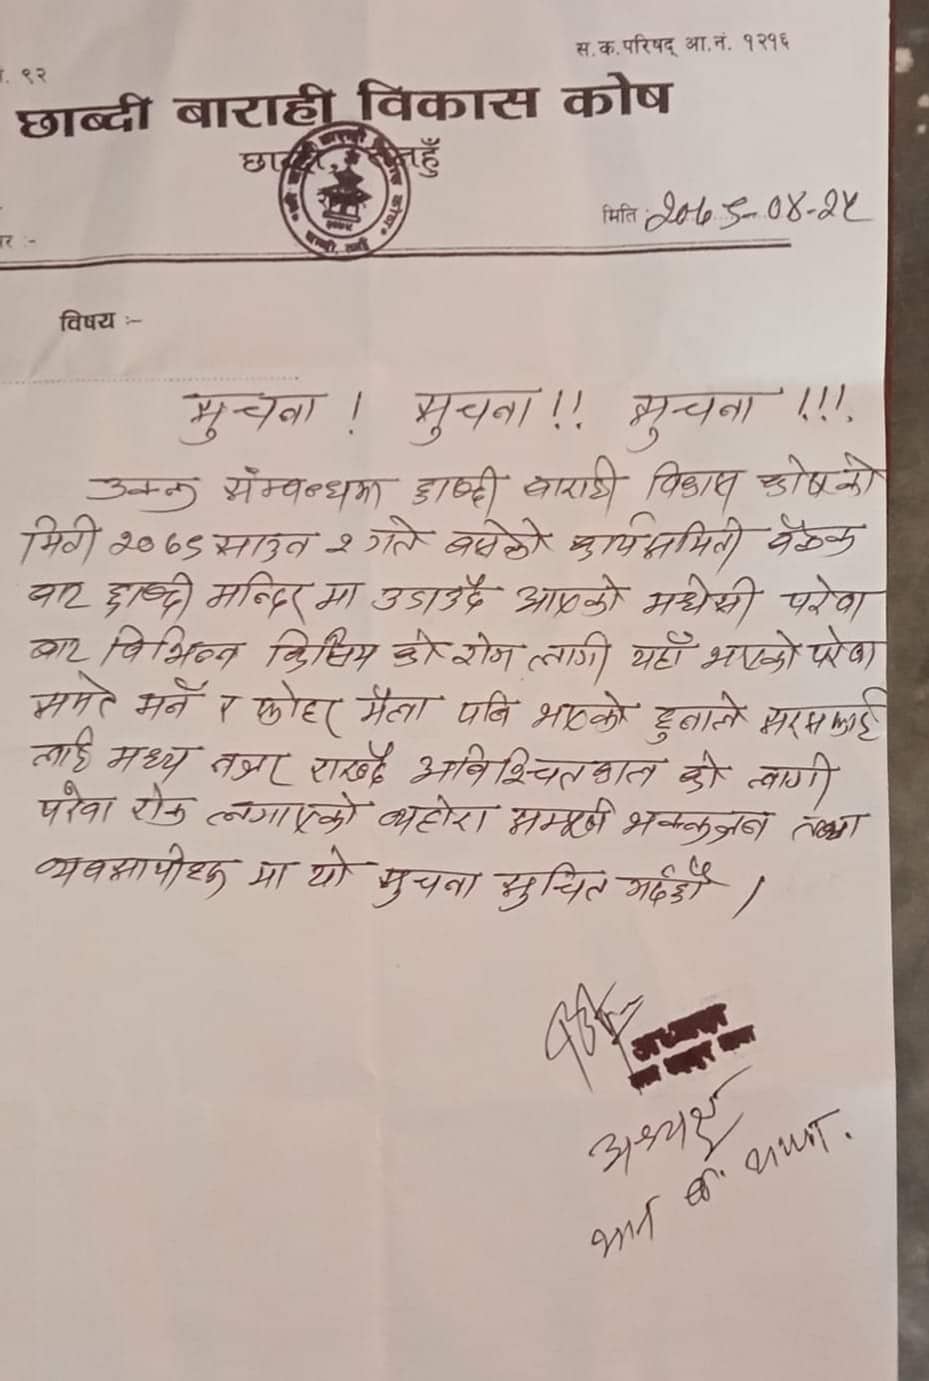 स.क.परिषद् आ.नं. १२१६
. ९२
छाब्दी बाराही विकास कोष
मिति २०७९-०४-२५
विषय :-
सुचना ! सुचना !! सुचना !!!
उक्त सम्बन्धमा छाब्दी बाराही विकास कोषको
मिती २०७९ साउन २ गते बसेको कार्यसमिती बैठक
बाट छाब्दी मन्दिर मा उडाउदै आएको मधेसी परेवा
बाट विभिन्न किसिम को रोग लागी यहाँ भएको परेवा
समेत मर्ने र फोहर मैला पनि भएको हुनाले सरसफाई
लाई मध्य नजर राख्दै अनिश्चितकाल को लागी
परेवा रोक लगाएको व्यहोरा सम्पूर्ण भक्तजन तथा
व्यवसायीहरु मा यो सुचना सुचित गर्दछौं ।
अध्यक्ष
अध्यक्ष